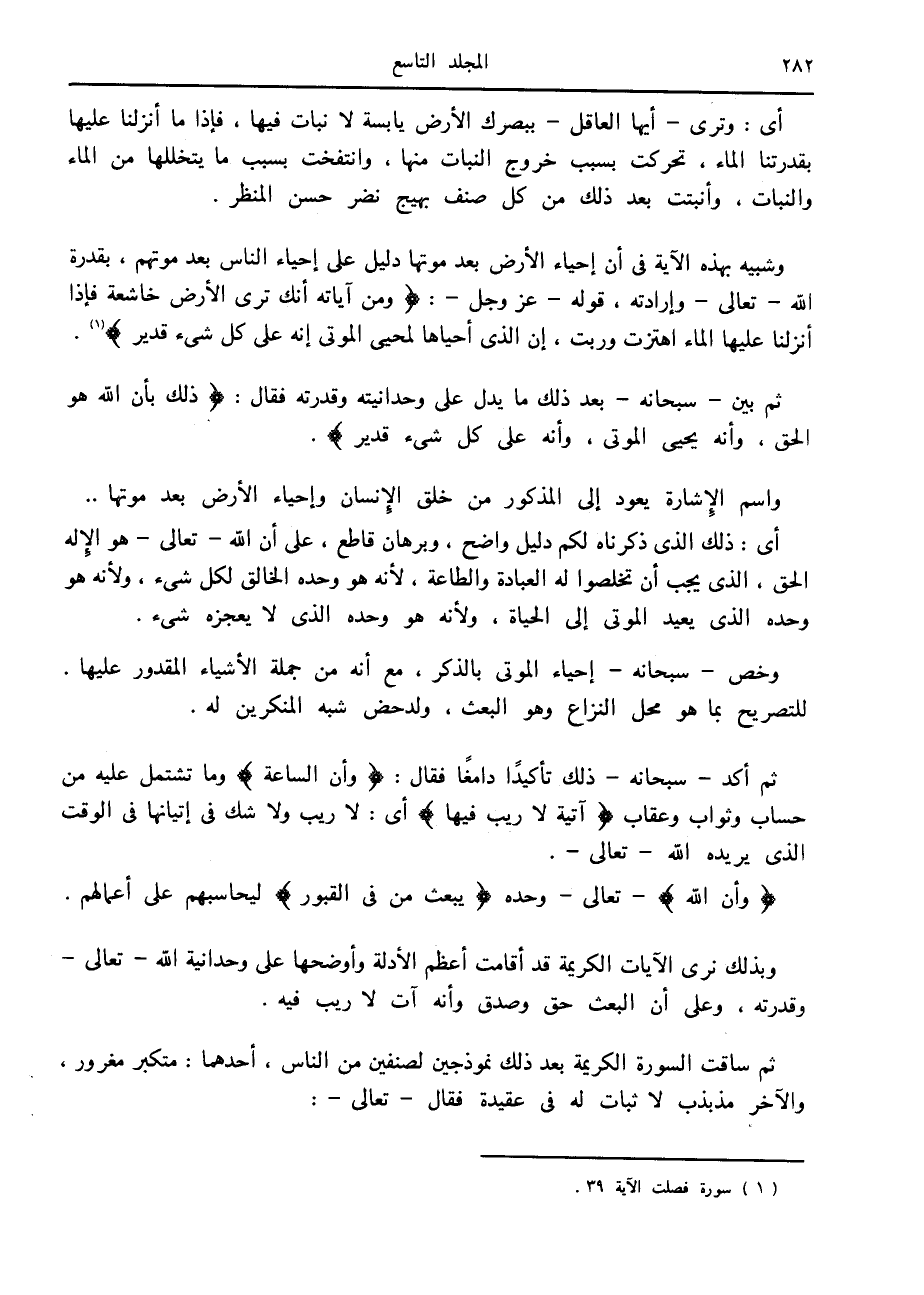 ٢٨٢ المجلد التاسع
أى : وترى – أيها العاقل – ببصرك الأرض يابسة لا نبات فيها ، فإذا ما أنزلنا عليها
بقدرتنا الماء ، تحركت بسبب خروج النبات منها ، وانتفخت بسبب ما يتخللها من الماء
والنبات ، وأنبتت بعد ذلك من كل صنف بهيج نضر حسن المنظر .
وشبيه بهذه الآية فى أن إحياء الأرض بعد موتها دليل على إحياء الناس بعد موتهم ، بقدرة
الله – تعالى – وإرادته ، قوله – عز وجل – : ﴿ ومن آياته أنك ترى الأرض خاشعة فإذا
أنزلنا عليها الماء اهتزت وربت ، إن الذى أحياها لمحيى الموتى إنه على كل شىء قدير ﴾(١) .
ثم بين – سبحانه – بعد ذلك ما يدل على وحدانيته وقدرته فقال : ﴿ ذلك بأن الله هو
الحق ، وأنه يحيى الموتى ، وأنه على كل شىء قدير ﴾ .
واسم الإشارة يعود إلى المذكور من خلق الإنسان وإحياء الأرض بعد موتها ..
أى : ذلك الذى ذكرناه لكم دليل واضح ، وبرهان قاطع ، على أن الله – تعالى – هو الإله
الحق ، الذى يجب أن تخلصوا له العبادة والطاعة ، لأنه هو وحده الخالق لكل شىء ، ولأنه هو
وحده الذى يعيد الموتى إلى الحياة ، ولأنه هو وحده الذى لا يعجزه شىء .
وخص – سبحانه – إحياء الموتى بالذكر ، مع أنه من جملة الأشياء المقدور عليها .
للتصريح بما هو محل النزاع وهو البعث ، ولدحض شبه المنكرين له .
ثم أكد – سبحانه – ذلك تأكيدًا دامغًا فقال : ﴿ وأن الساعة ﴾ وما تشتمل عليه من
حساب وثواب وعقاب ﴿ آتية لا ريب فيها ﴾ أى : لا ريب ولا شك فى إتيانها فى الوقت
الذى يريده الله – تعالى – .
﴿ وأن الله ﴾ – تعالى – وحده ﴿ يبعث من فى القبور ﴾ ليحاسبهم على أعمالهم .
وبذلك نرى الآيات الكريمة قد أقامت أعظم الأدلة وأوضحها على وحدانية الله – تعالى –
وقدرته ، وعلى أن البعث حق وصدق وأنه آت لا ريب فيه .
ثم ساقت السورة الكريمة بعد ذلك نموذجين لصنفين من الناس ، أحدهما : متكبر مغرور ،
والآخر مذبذب لا ثبات له فى عقيدة فقال – تعالى – :
( ١ ) سورة فصلت الآية ٣٩ .